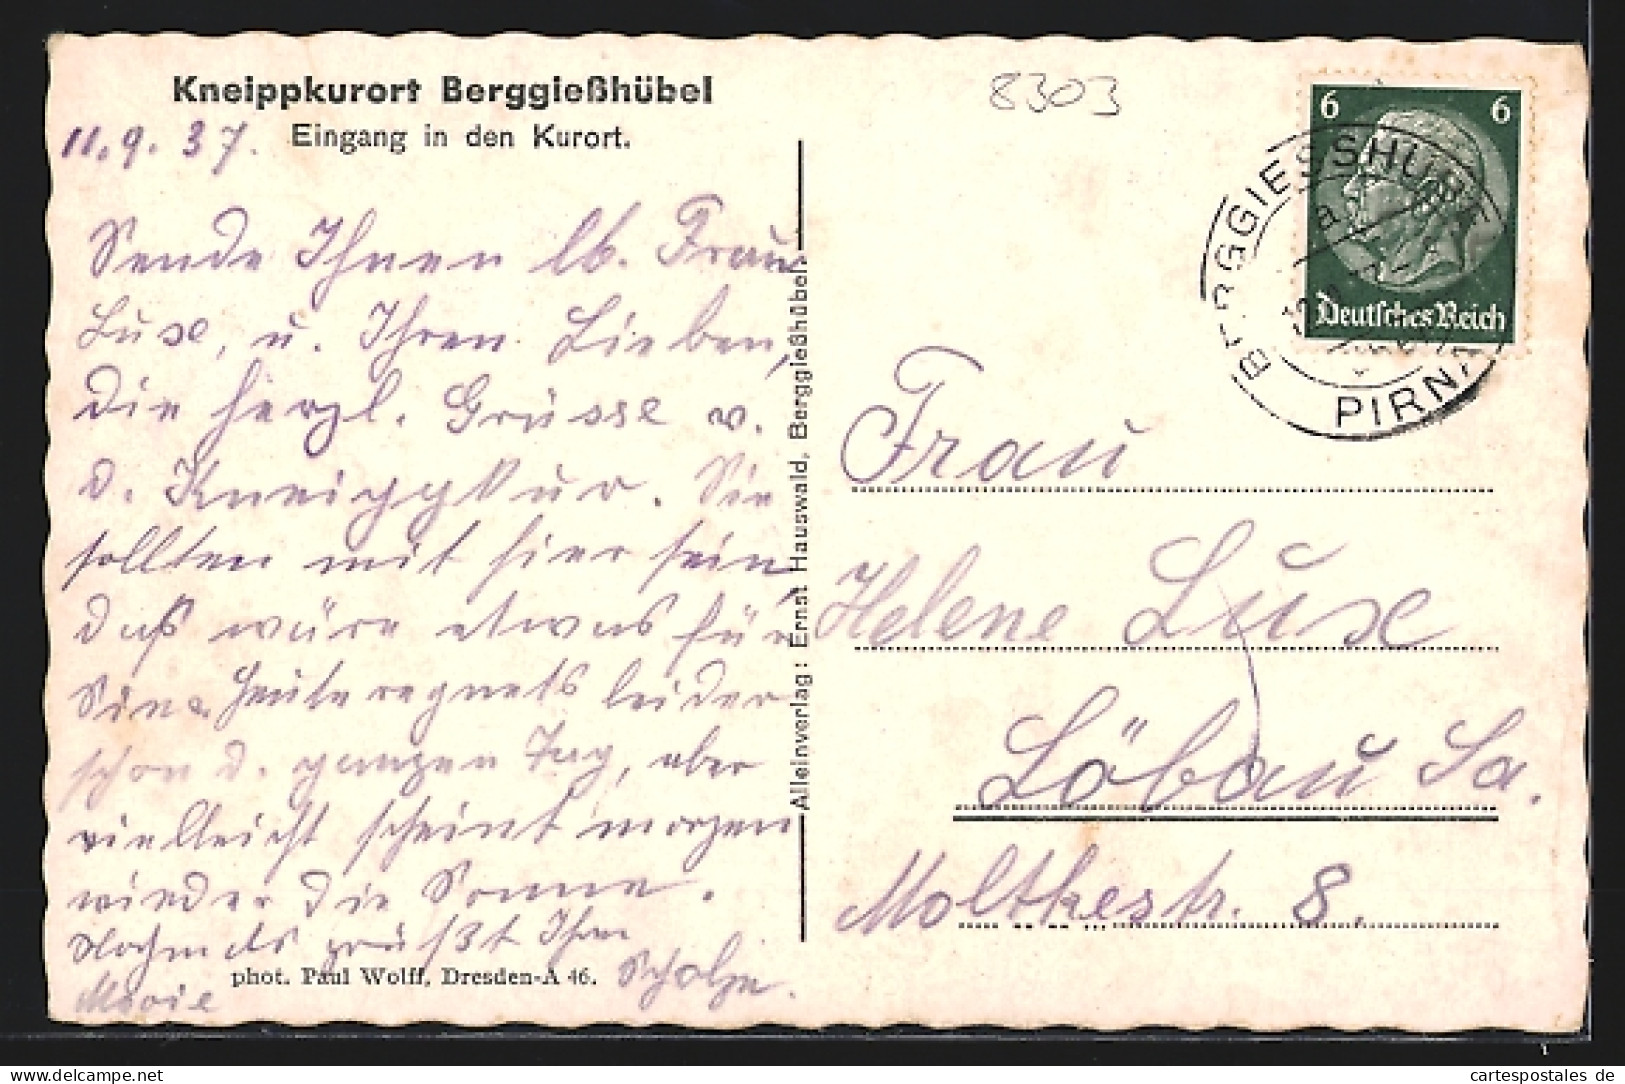 Kneippkurort Berggießhübel
Eingang in den Kurort.
8303
11.9.37.
Sende Ihnen lb. Frau
Luxe, u. Ihren Lieben,
die herzl. Grüsse v.
d. Kneippkur. Sie
sollten mit hier sein,
daß wäre etwas für
Sie. Heute regnets leider
schon d. ganzen Tag, aber
vielleicht scheint morgen
wieder die Sonne.
Nochmals grüßt Ihre
Marie Scholze.
phot. Paul Wolff, Dresden-A 46.
Alleinverlag: Ernst Hauswald, Berggießhübel
6 6
Deutsches Reich
BERGGIESSHÜBEL
a
PIRNA
Frau
Helene Luxe
Löbau Sa.
Moltkestr. 8.
www.delcampe.net
cartespostales de